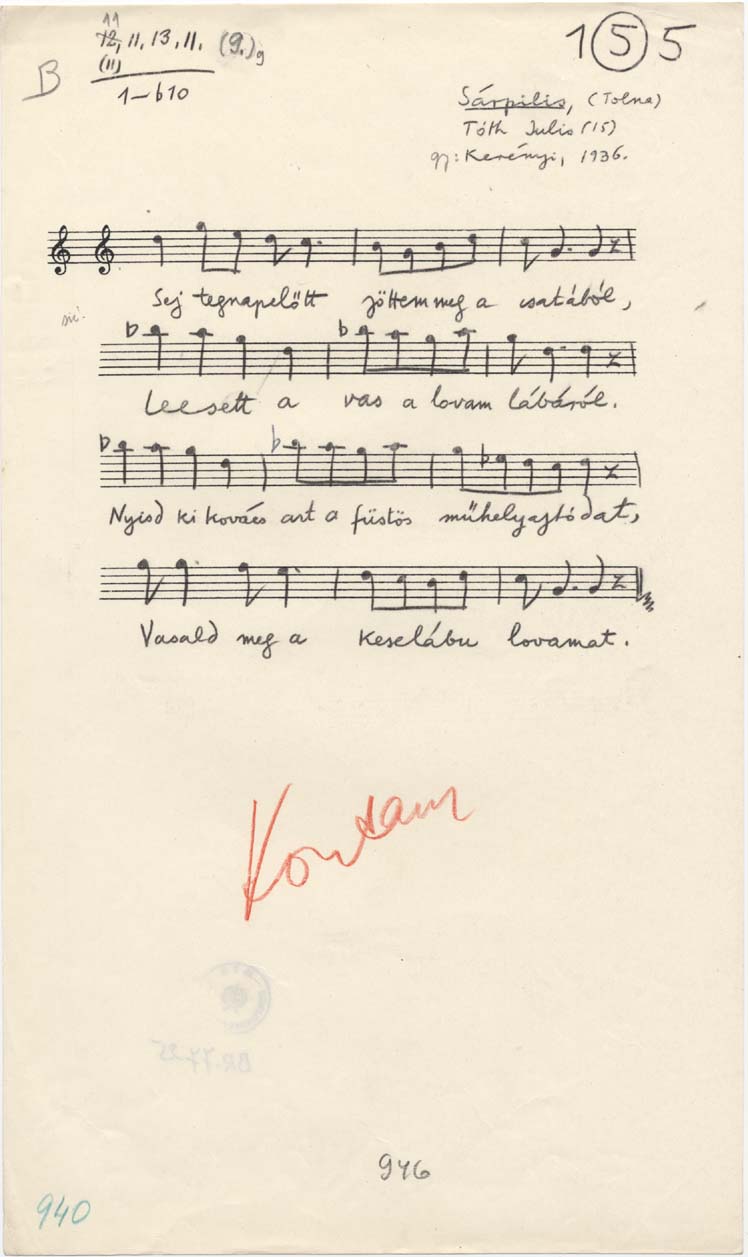 11
12, 11, 13, 11. (9.)9
(11)
B
1–b10
1 5 5
Sárpilis, (Tolna)
Tóth Julis (15)
gy: Kerényi, 1936.
Sej tegnapelőtt jöttem meg a csatából,
Leesett a vas a lovam lábáról.
Nyisd ki kovács art a füstös műhelyajtódat,
Vasald meg a keselábu lovamat.
BR-
946
940